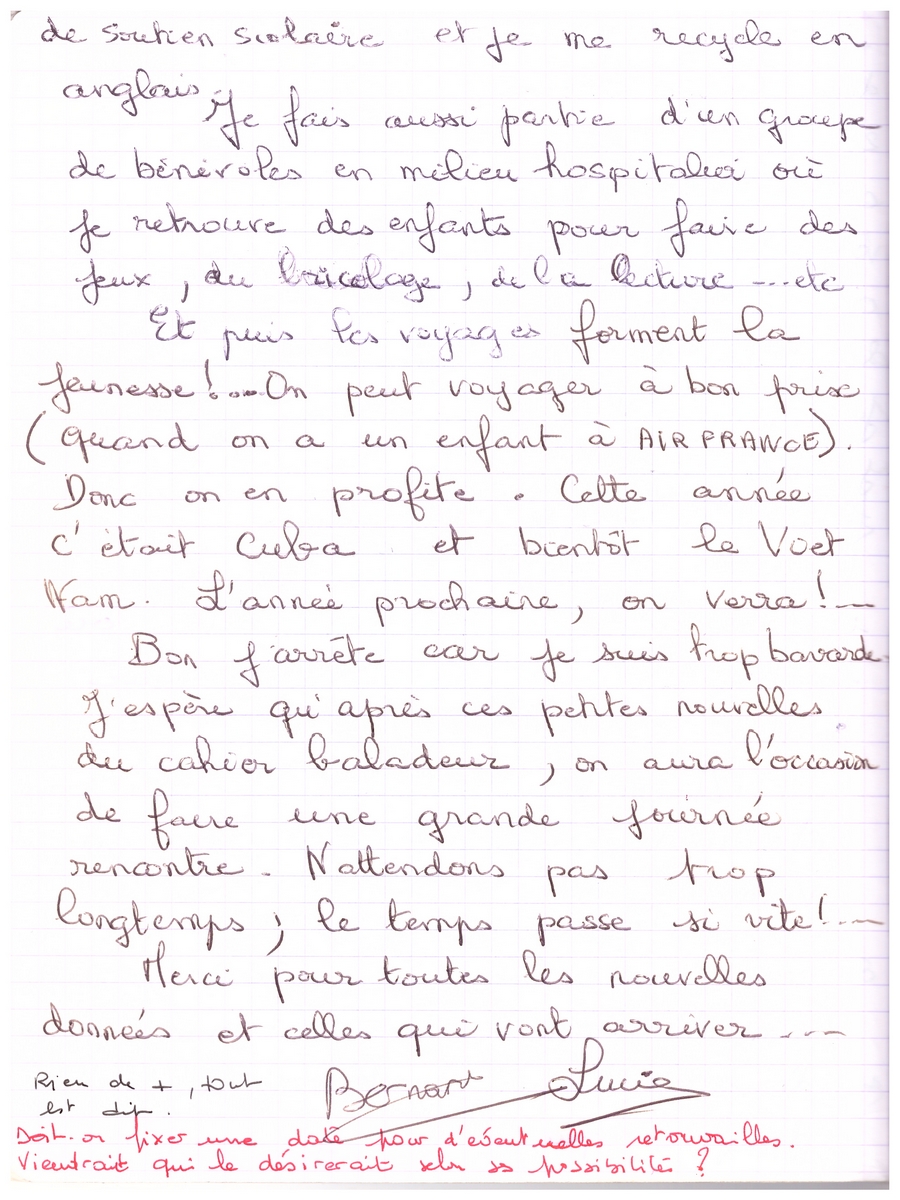 de soutien scolaire et je me recycle en
anglais.
Je fais aussi partie d'un groupe
de bénévoles en milieu hospitalier où
je retrouve des enfants pour faire des
jeux, du bricolage, de la lecture ... etc
Et puis les voyages forment la
jeunesse!... On peut voyager à bon prix
(quand on a un enfant à AIR FRANCE).
Donc on en profite. Cette année
c'était Cuba et bientôt le Viet
Nam. L'année prochaine, on verra!...
Bon j'arrête car je suis trop bavarde.
J'espère qu'après ces petites nouvelles
du cahier baladeur, on aura l'occasion
de faire une grande journée
rencontre. N'attendons pas trop
longtemps; le temps passe si vite!...
Merci pour toutes les nouvelles
données et celles qui vont arriver ....
Rien de +, tout
est dit.
Bernard Lucie
Doit-on fixer une date pour d'éventuelles retrouvailles.
Viendrait qui le désirerait selon ses possibilités ?